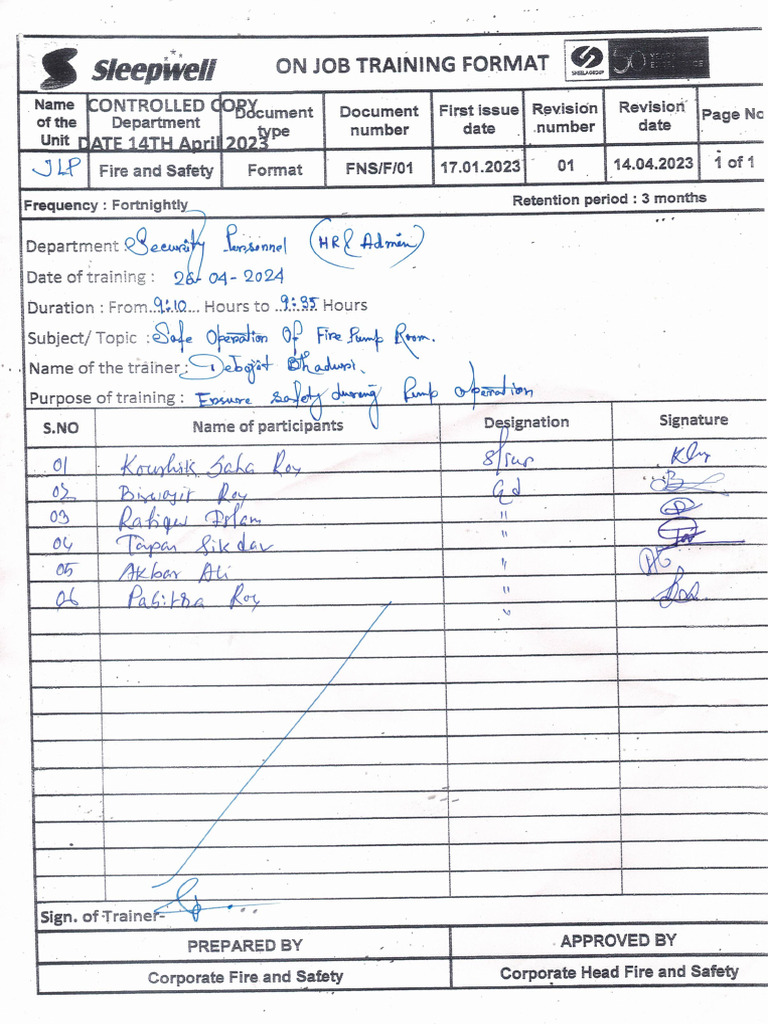 Sleepwell ON JOB TRAINING FORMAT SHEELA GROUP 50 YEARS
Name of the Unit Department Document type Document number First issue date Revision number Revision date Page No
CONTROLLED COPY
DATE 14TH April 2023
JLP Fire and Safety Format FNS/F/01 17.01.2023 01 14.04.2023 1 of 1
Frequency : Fortnightly Retention period : 3 months
Department : Security Personnel (HR & Admin)
Date of training : 26-04-2024
Duration : From 9:10 Hours to 9:35 Hours
Subject/ Topic : Safe Operation Of Fire Pump Room.
Name of the trainer : Debojit Bhaduri.
Purpose of training : Ensure safety during Pump operation
S.NO Name of participants Designation Signature
01 Koushik Saha Roy
02 Biswajit Roy Gd
03 Rafiqur Islam "
04 Tapan Sikdar "
05 Akbar Ali "
06 Pabitra Roy "
"
Sign. of Trainer-
PREPARED BY APPROVED BY
Corporate Fire and Safety Corporate Head Fire and Safety